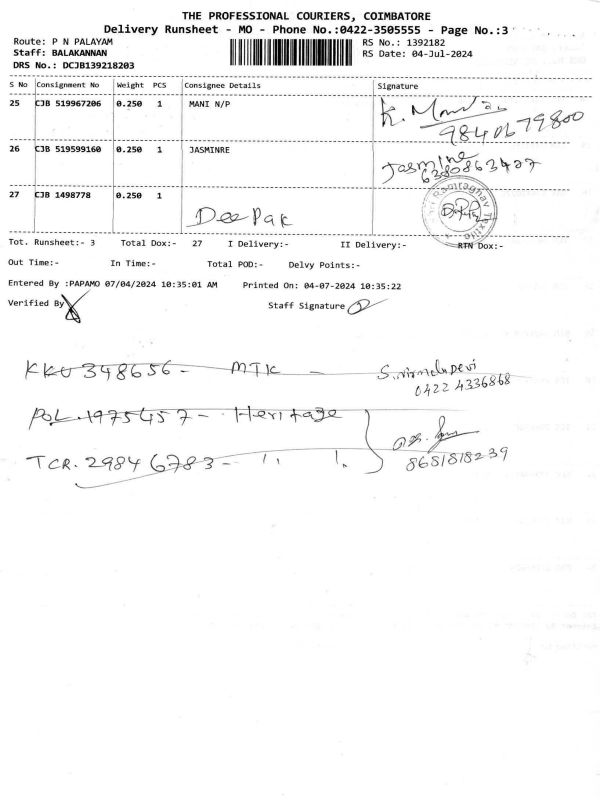 THE PROFESSIONAL COURIERS, COIMBATORE
Delivery Runsheet - MO - Phone No.:0422-3505555 - Page No.:3
Route: P N PALAYAM
RS No.: 1392182
Staff: BALAKANNAN
RS Date: 04-Jul-2024
DRS No.: DCJB139218203
S No Consignment No Weight PCS Consignee Details Signature
25 CJB 519967206 0.250 1 MANI N/P
9840679800
26 CJB 519599160 0.250 1 JASMINRE
Jasmine
6380863427
27 CJB 1498778 0.250 1
DeePak
Tot. Runsheet:- 3 Total Dox:- 27 I Delivery:- II Delivery:- RTN Dox:-
Out Time:- In Time:- Total POD:- Delvy Points:-
Entered By :PAPAMO 07/04/2024 10:35:01 AM Printed On: 04-07-2024 10:35:22
Verified By Staff Signature
KKU 348656 - MTK - S. Nirmala Devi
0422 4336868
POL. 1975457 - Heritage
TCR. 29846783 - '' ''
8681818239